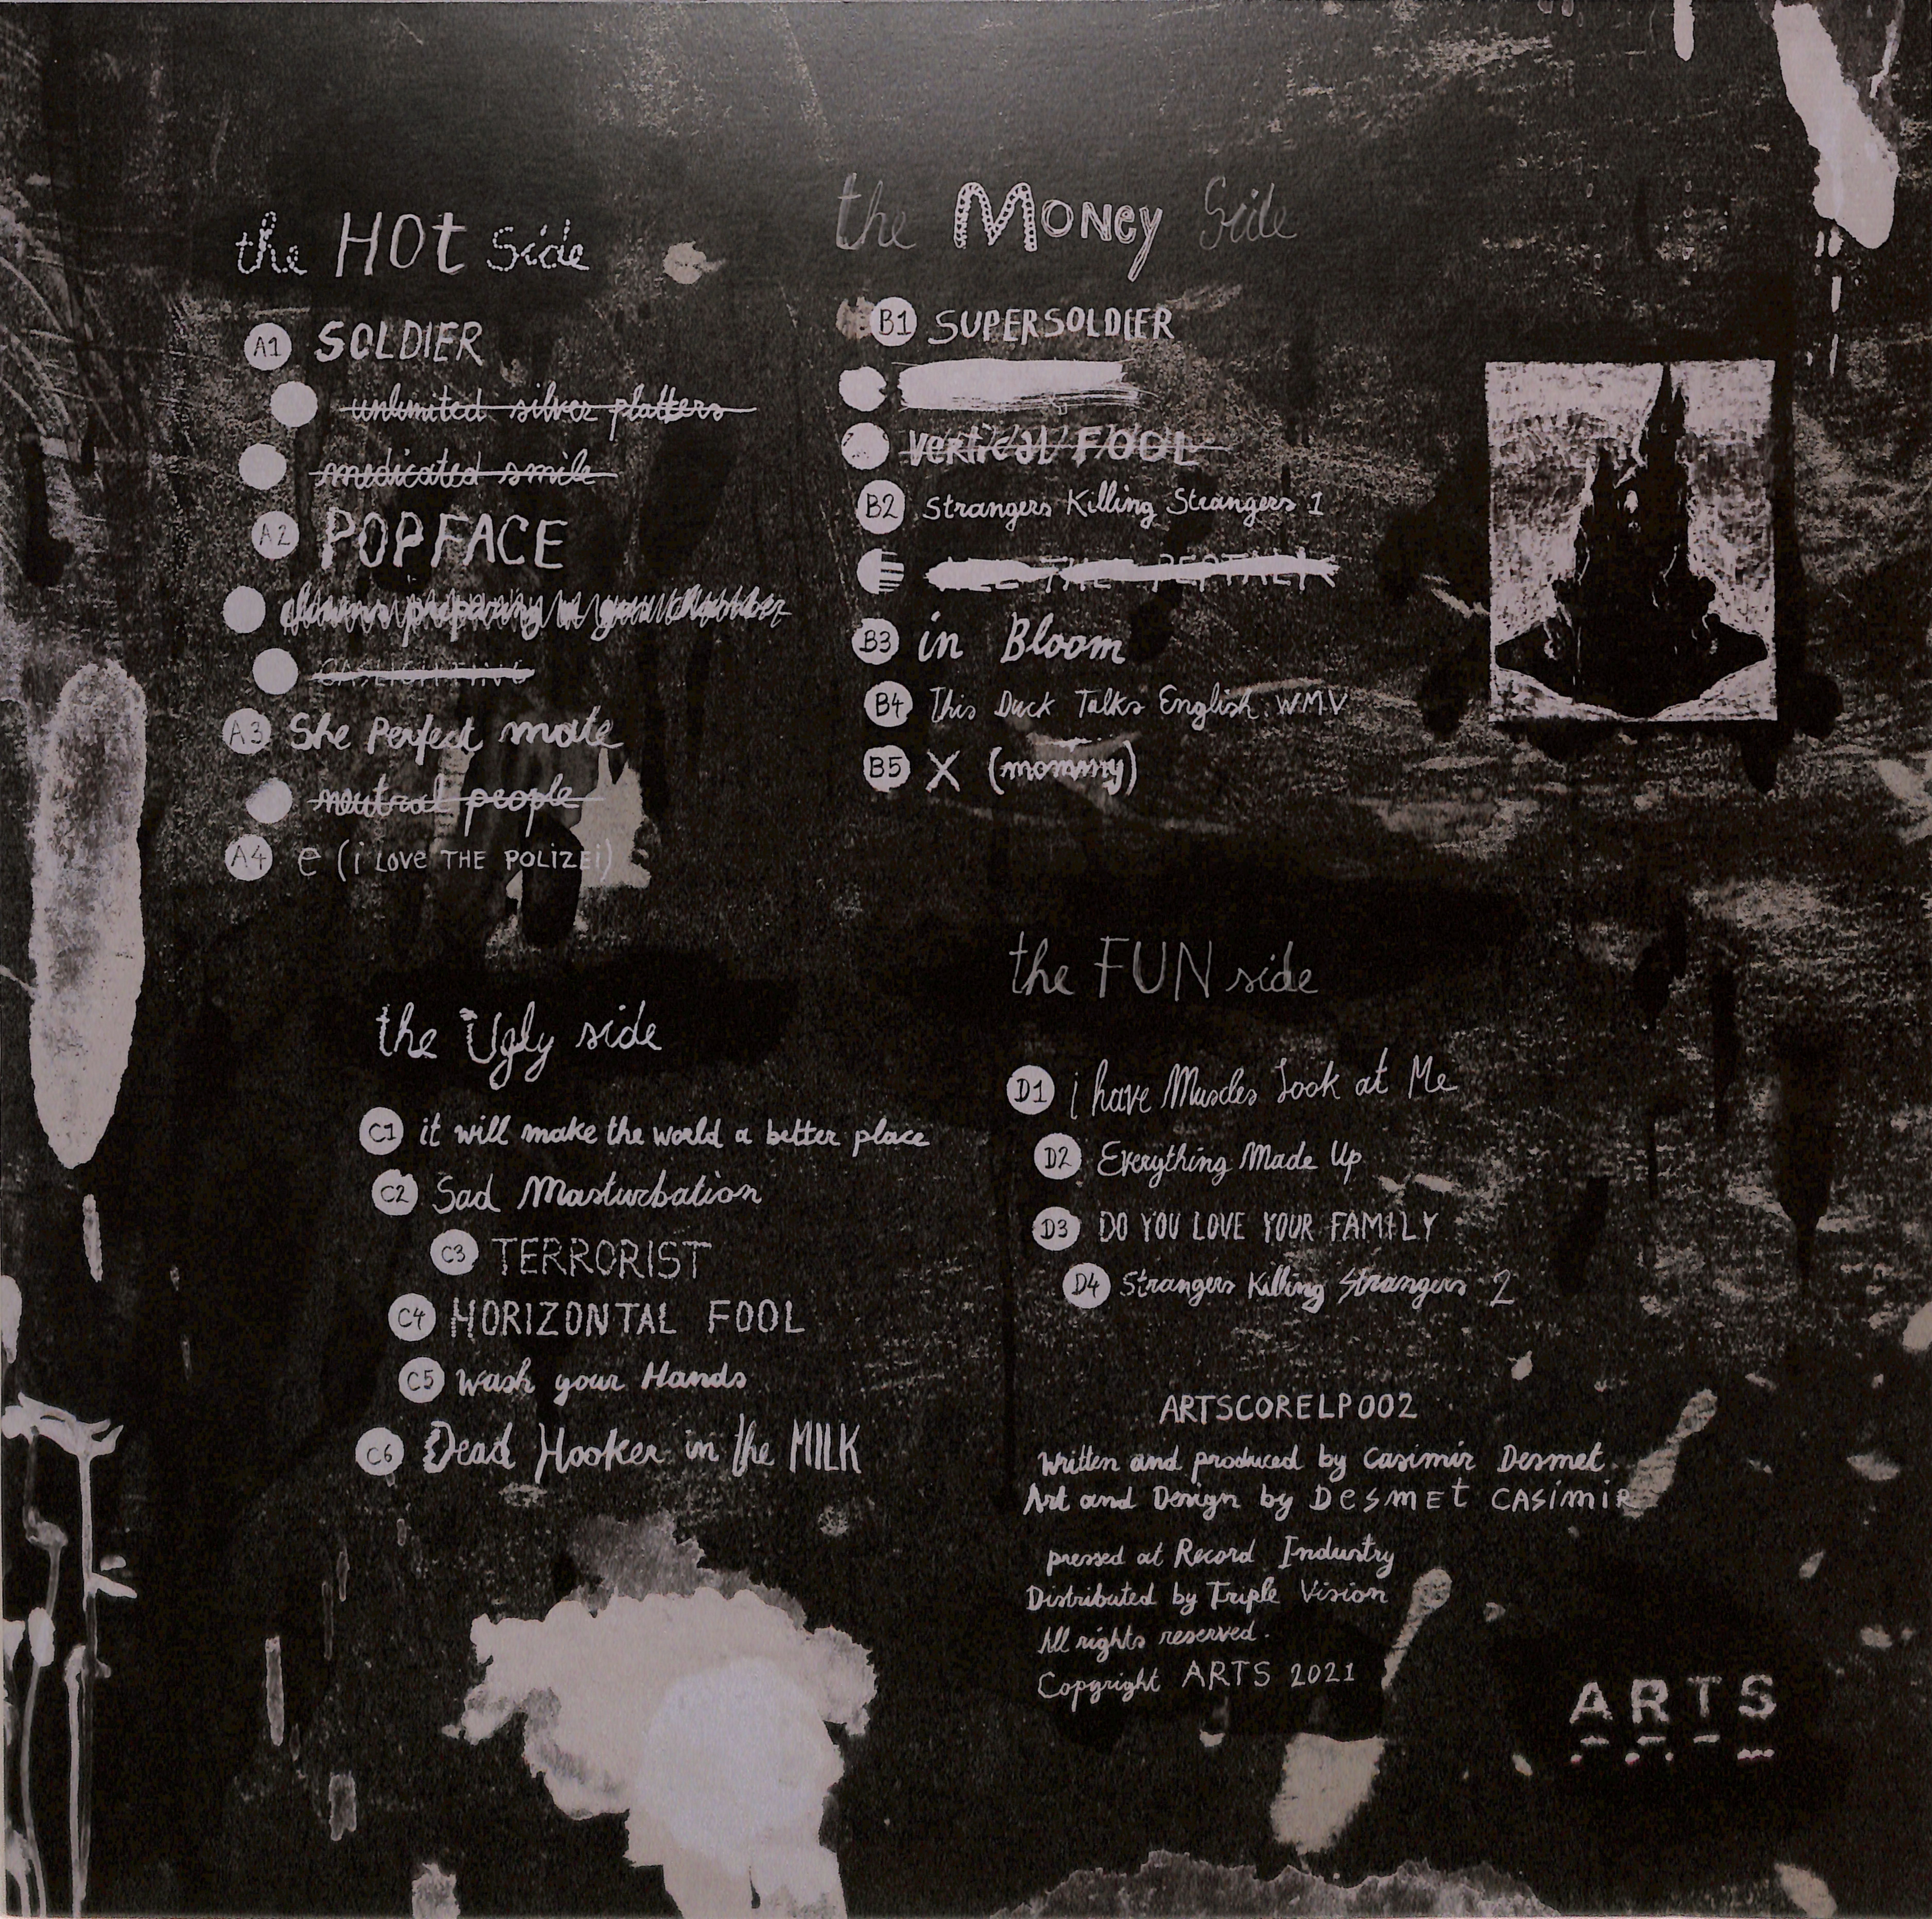 the HOt Side
A1 SOLDIER
unlimited silver platters
medicated smile
A2 POPFACE
A3 She Perfect mate
neutral people
A4 e (i LOVE THE POLIZEi)
the MONey Side
B1 SUPERSOLDIER
vertical FOOL
B2 Strangers Killing Strangers 1
B3 in Bloom
B4 This Duck Talks English.WMV
B5 X (mommy)
the Ugly side
C1 it will make the world a better place
C2 Sad Masturbation
C3 TERRORIST
C4 HORIZONTAL FOOL
C5 wash your Hands
C6 Dead Hooker in the MILK
the FUN side
D1 i have Muscles Look at Me
D2 Everything Made Up
D3 DO YOU LOVE YOUR FAMILY
D4 Strangers Killing Strangers 2
ARTSCORELP002
written and produced by Casimir Desmet.
Art and Design by DeSMEt CASiMiR
pressed at Record Industry
Distributed by Triple Vision
All rights reserved.
Copyright ARTS 2021
ARTS